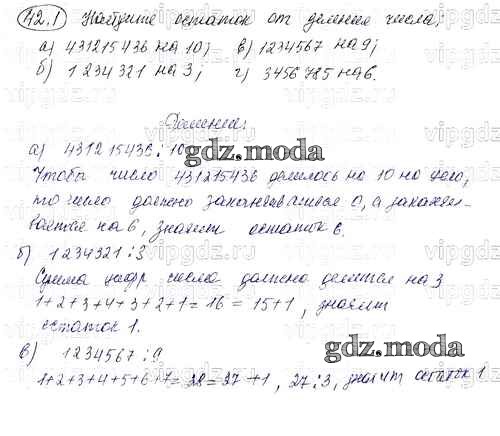 42.1 Найдите остаток от деления числа:
а) 431215436 на 10; в) 1234567 на 9;
б) 1234321 на 3; г) 3456785 на 6.
Решение:
а) 431215436 : 10
gdz.moda
Чтобы число 431215436 делилось на 10 на цело,
то число должно заканчиваться 0, а заканчи-
вается на 6, значит остаток 6.
б) 1234321 : 3
Сумма цифр числа должна делиться на 3
1+2+3+4+3+2+1=16=15+1, значит
остаток 1.
в) 1234567 : 9
gdz.moda
1+2+3+4+5+6+7=28=27+1, 27:3, значит остаток 1
vipgdz.ru